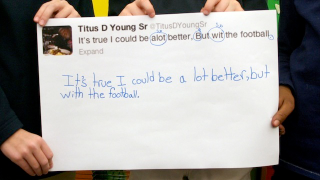 Titus D Young Sr @TitusDYoungSr
It's true I could be alot better, But wit the football
Expand
It's true I could be a lot better, but
with the football.